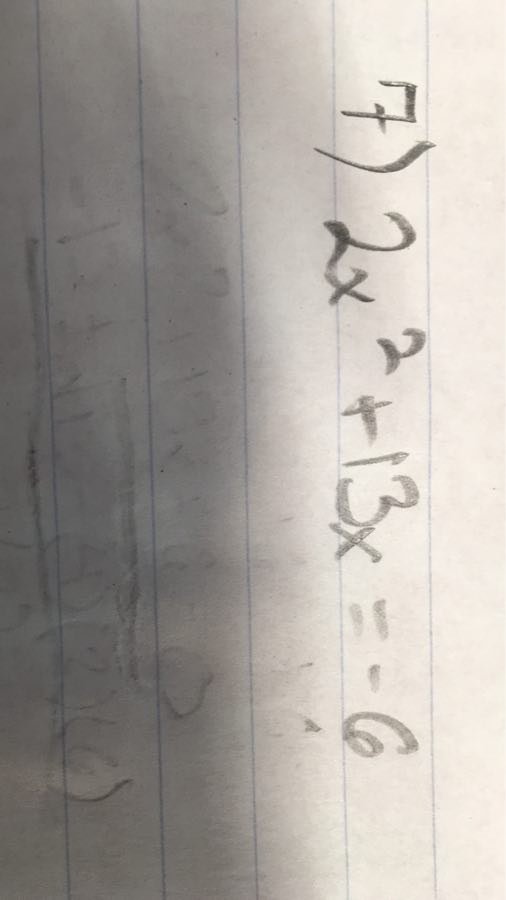 7) 2x² + 13x = -6